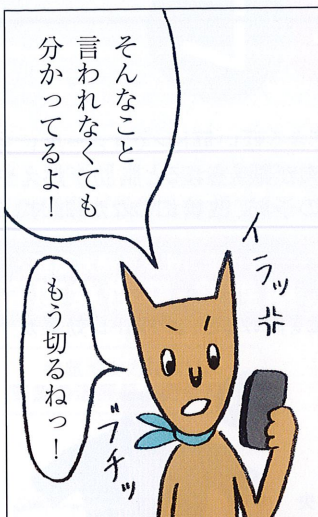 そんなこと
言われなくても
分かってるよ！
イラッ
もう切るねっ！
ブチッ